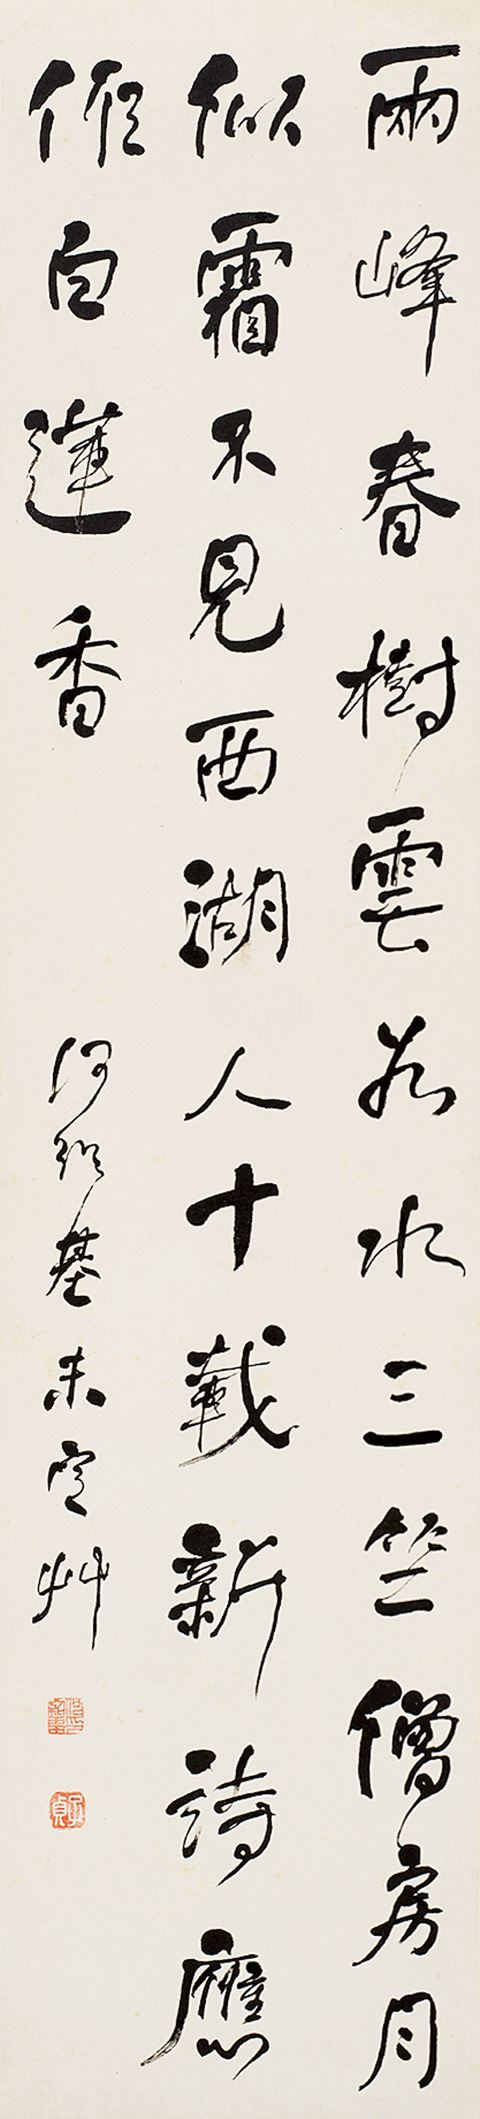 兩峰春樹雲若水三竺僧房月
似霜不見西湖人十載新詩應
白蓮香
何紹基未定艸
子貞